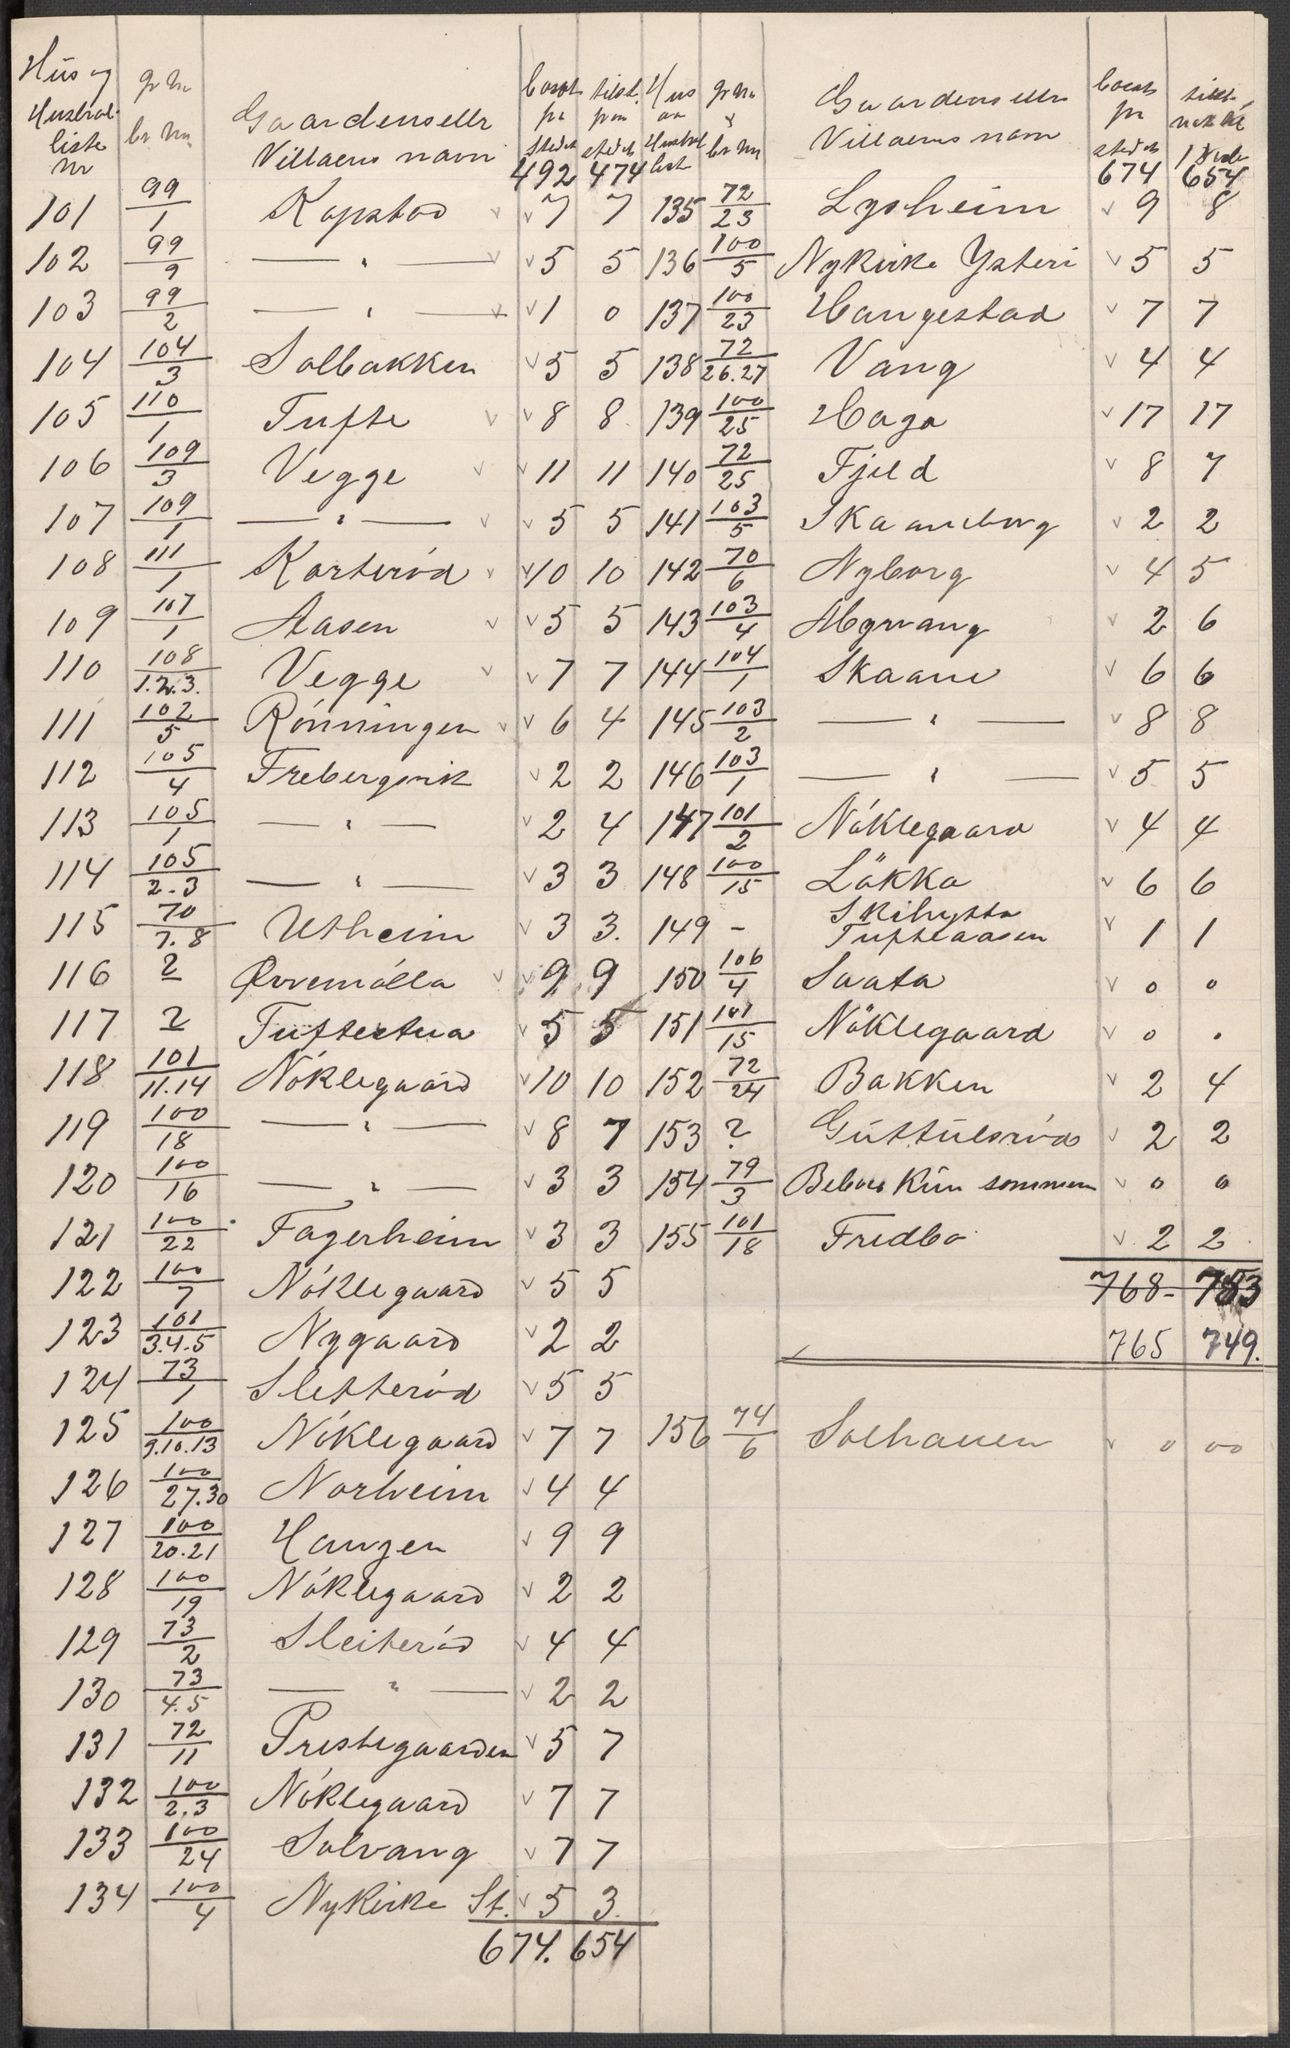 Hus og Husthol. liste nr | gr nr br nr | Gaardens ellr Villaens navn | bosat pa stedet | tilst. paa stedet | Hus og Hushol list | gr nr br nr | Gaardens ellr Villaens navn | bosat pa stedet | tilst.
492 474 674 654
101 99/1 Kopstad 7 7 135 72/23 Lysheim 9 8
102 99/9 — " — 5 5 136 100/5 Nykirke Ysteri 5 5
103 99/2 — " — 1 0 137 100/23 Haugestad 7 7
104 104/3 Solbakken 5 5 138 72/26.27 Vang 4 4
105 110/1 Tufte 8 8 139 100/25 Haga 17 17
106 109/3 Vegge 11 11 140 72/25 Fjeld 8 7
107 109/1 — " — 5 5 141 103/5 Skaaneborg 2 2
108 111/1 Korterød 10 10 142 70/6 Nyborg 4 5
109 107/1 Aasen 5 5 143 103/4 Myrvang 2 6
110 108/1.2.3. Vegge 7 7 144 104/1 Skaane 6 6
111 102/5 Rønningen 6 4 145 103/2 — " — 8 8
112 105/4 Frebergsvik 2 2 146 103/1 — " — 5 5
113 105/1 — " — 2 4 147 101/2 Nøklegaard 4 4
114 105/2-3 — " — 3 3 148 100/15 Løkka 6 6
115 70/7.8 Utheim 3 3. 149 - Skihytta Tufteaasen 1 1
116 2 Øvremølla 9 9 150 106/4 Saata 0 0
117 2 Tuftestua 5 5 151 101/15 Nøklegaard 0 .
118 101/11.14 Nøklegaard 10 10 152 72/24 Bakken 2 4
119 100/18 — " — 8 7 153 ? Guttulsrød 2 2
120 100/16 — " — 3 3 154 79/3 Beboes kun sommeren 0 0
121 100/22 Fagerheim 3 3 155 101/18 Fredbo 2 2
122 100/7 Nøklegaard 5 5 768- 753
123 101/3.4.5 Nygaard 2 2 765 749.
124 73/1 Sletterød 5 5
125 100/9.10.13 Nøklegaard 7 7 156 74/6 Solhauen 0 00
126 100/27.30 Norheim 4 4
127 100/20.21 Haugen 9 9
128 100/19 Nøklegaard 2 2
129 73/2 Sleiterød 4 4
130 73/4.5 — " — 2 2
131 72/11 Prestegaarden 5 7
132 100/2.3 Nøklegaard 7 7
133 100/24 Solvang 7 7
134 100/4 Nykirke St. 5 3.
674. 654